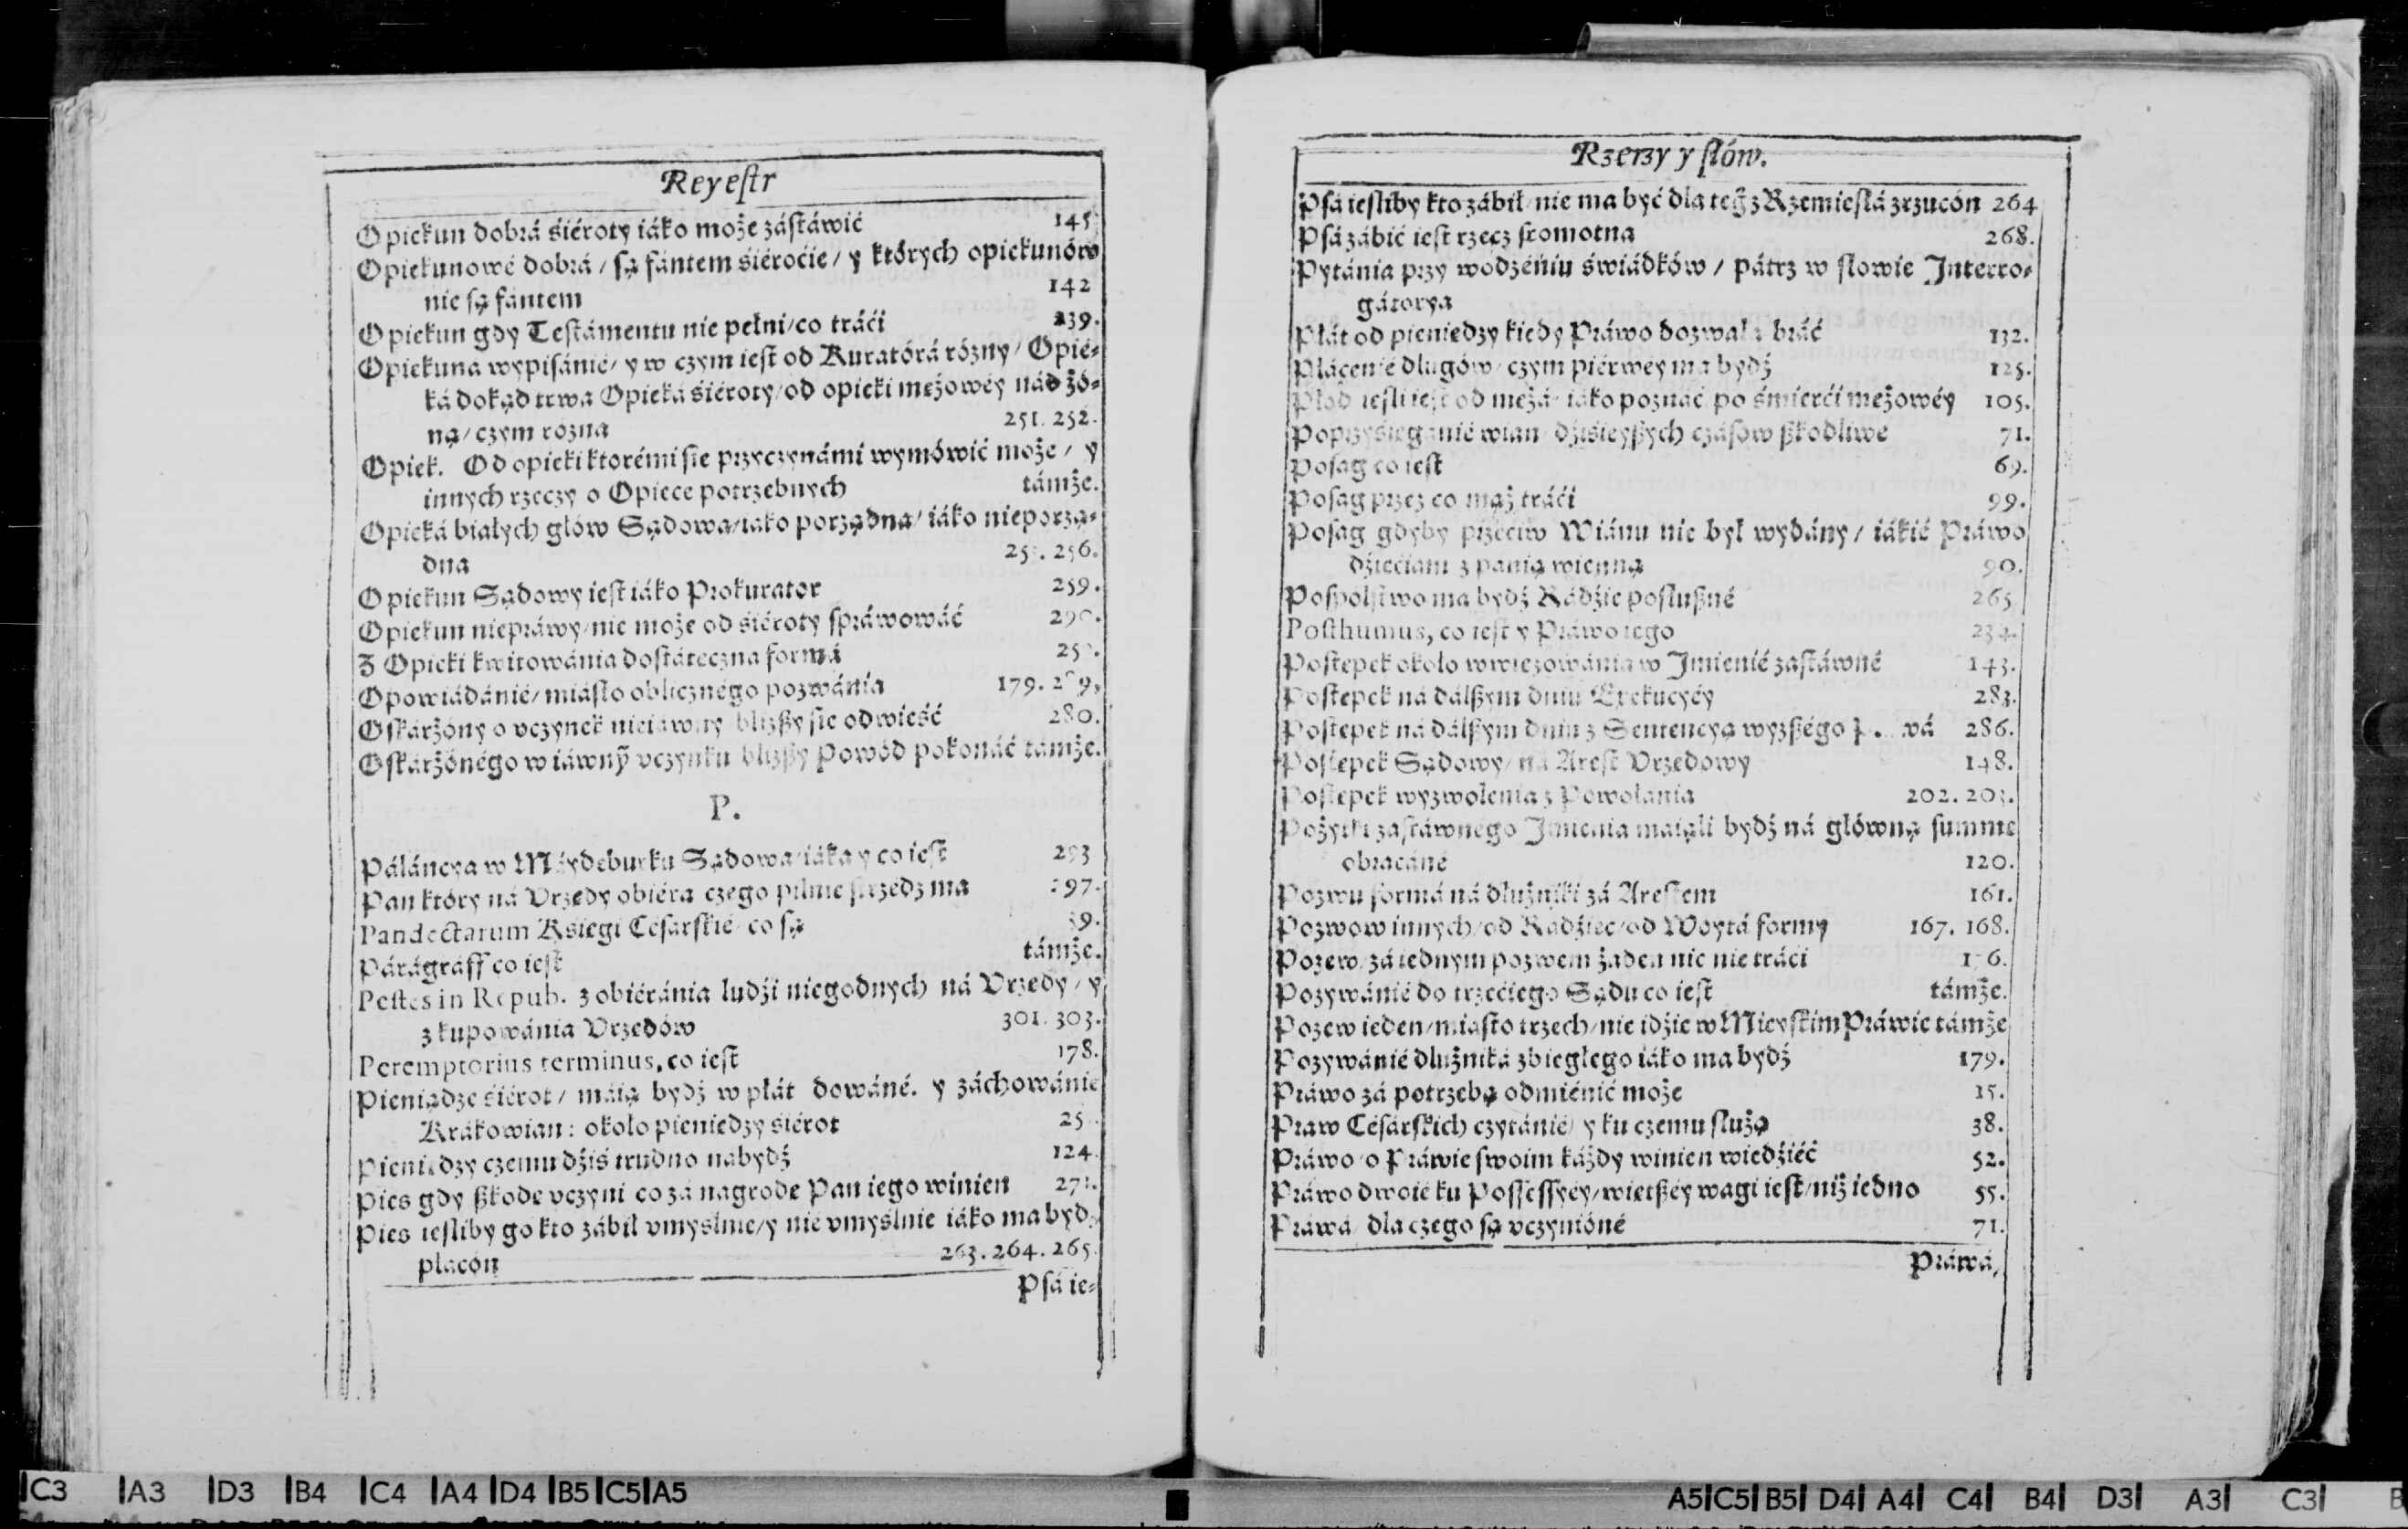 Reyestr
Opiekun dobrá śiéroty iáko może zástáwić 145
Opiekunowé dobrá / są fántem śiéroćie / y których opiekunów
nie są fántem 142
Opiekun gdy Testámentu nie pełni / co tráći 239.
Opiekuná wypisánié / y w czym iest od Kuratórá rózny / Opié-
ká dokąd trwa Opieká śiéroty / od opieki mężowéy nád żó-
ną / czym rózna 251. 252.
Opiek. Od opieki ktorémi sie przyczynámi wymówić może / y
innych rzeczy o Opiece potrzebnych támże.
Opieká białych głów Sądowa / iáko porządna / iáko nieporzą-
dna 256.
Opiekun Sądowy iest iáko Prokurator 259.
Opiekun niepráwy / nie może od śiéroty spráwowáć 290.
Z Opieki kwitowánia dostáteczna formá
Opowiádánié / miásto oblicznégo pozwánia 179.
Oskárżóny o vczynek nieiáwny bliższy sie odwieść 280.
Oskárżónégo w iáwnỹ vczynku bliższy Powód pokonáć támże.
P.
Páláncya w Máydeburku Sądowa / iáka y co iest 293
Pan który ná Vrzędy obiéra czego pilnie strzedz ma 297.
Pandectarum Kśięgi Césárskié / co są 39.
Párágráff co iest támże.
Pestes in Repub. z obiéránia ludźi niegodnych ná Vrzędy / y
z kupowánia Vrzędów 301. 303.
Peremptorius terminus, co iest 178.
Pieniądze śiérot / máią bydź w płát dowáné. y záchowánié
Krákowian: około pieniędzy śiérot
Pieniędzy czemu dźiś trudno nabydź 124
Pies gdy szkodę vczyni co zá nagrodę Pan iego winien 271.
Pies iesliby go kto zábił vmyślnie / y nié vmyślnie iáko ma bydź
płacón 263. 264. 265.
Psá ie-
Rzeczy y słów.
Psá iesliby kto zábił / nie ma być dla teg̃ z Rzemiesłá zrzucón 264
Psá zábić iest rzecz sromotna 268.
Pytánia przy wodzéniu świádków / pátrz w słowie Interro-
gátorya
Płát od pieniędzy kiedy Práwo dozwala bráć 132.
Płácenié długów / czym piérwéy ma bydź 125.
Płód iesli iest od mężá / iáko poznáć po śmierći mężowéy 105.
Poprzyśięganié wian dźiśieyszych czásów szkodliwé 71.
Posag co iest 69.
Posag przez co mąż tráći 99.
Posag gdyby przećiw Wiánu nie był wydány / iákié Práwo
dźiećiam z panią wienną 90.
Pospólstwo ma bydź Rádźie posłuszné 265
Posthumus, co iest y Práwo iego
Postępek około wwięzowánia w Imienié zastáwné 143.
Postępek ná dálszym dniu Exekucyéy 283.
Postępek ná dálszym dniu z Sentencyą wyzszégo P..wá 286.
Postępek Sądowy / ná Arest Vrzędowy 148.
Postępek wyzwolenia z Powołania 202. 203.
Pożytki zastáwnégo Imienia máiąli bydź ná główną summę
obracáné 120.
Pozwu formá ná dłużniki zá Arestem 161.
Pozwow innych / od Rádźiec / od Woytá formy 167. 168.
Pozew / zá iednym pozwem żaden nic nie tráći
Pozywánié do trzećiego Sądu co iest támże.
Pozew ieden / miásto trzech / nie idźie w Mieyskim Práwie támże
Pozywánié dłużniká zbiegłego iáko ma bydź 179.
Práwo zá potrzebą odmiénić może 15.
Praw Césárskich czytánié / y ku czemu służą 38.
Práwo / o Práwie swoim káżdy winien wiedźiéć 52.
Práwo dwoié ku Possessyéy / więtszéy wagi iest / niż iedno 55.
Práwá / dla czego są vczynióné 71.
Práwá,
C3 A3 D3 B4 C4 A4 D4 B5 C5 A5
A5 C5 B5 D4 A4 C4 B4 D3 A3 C3 B